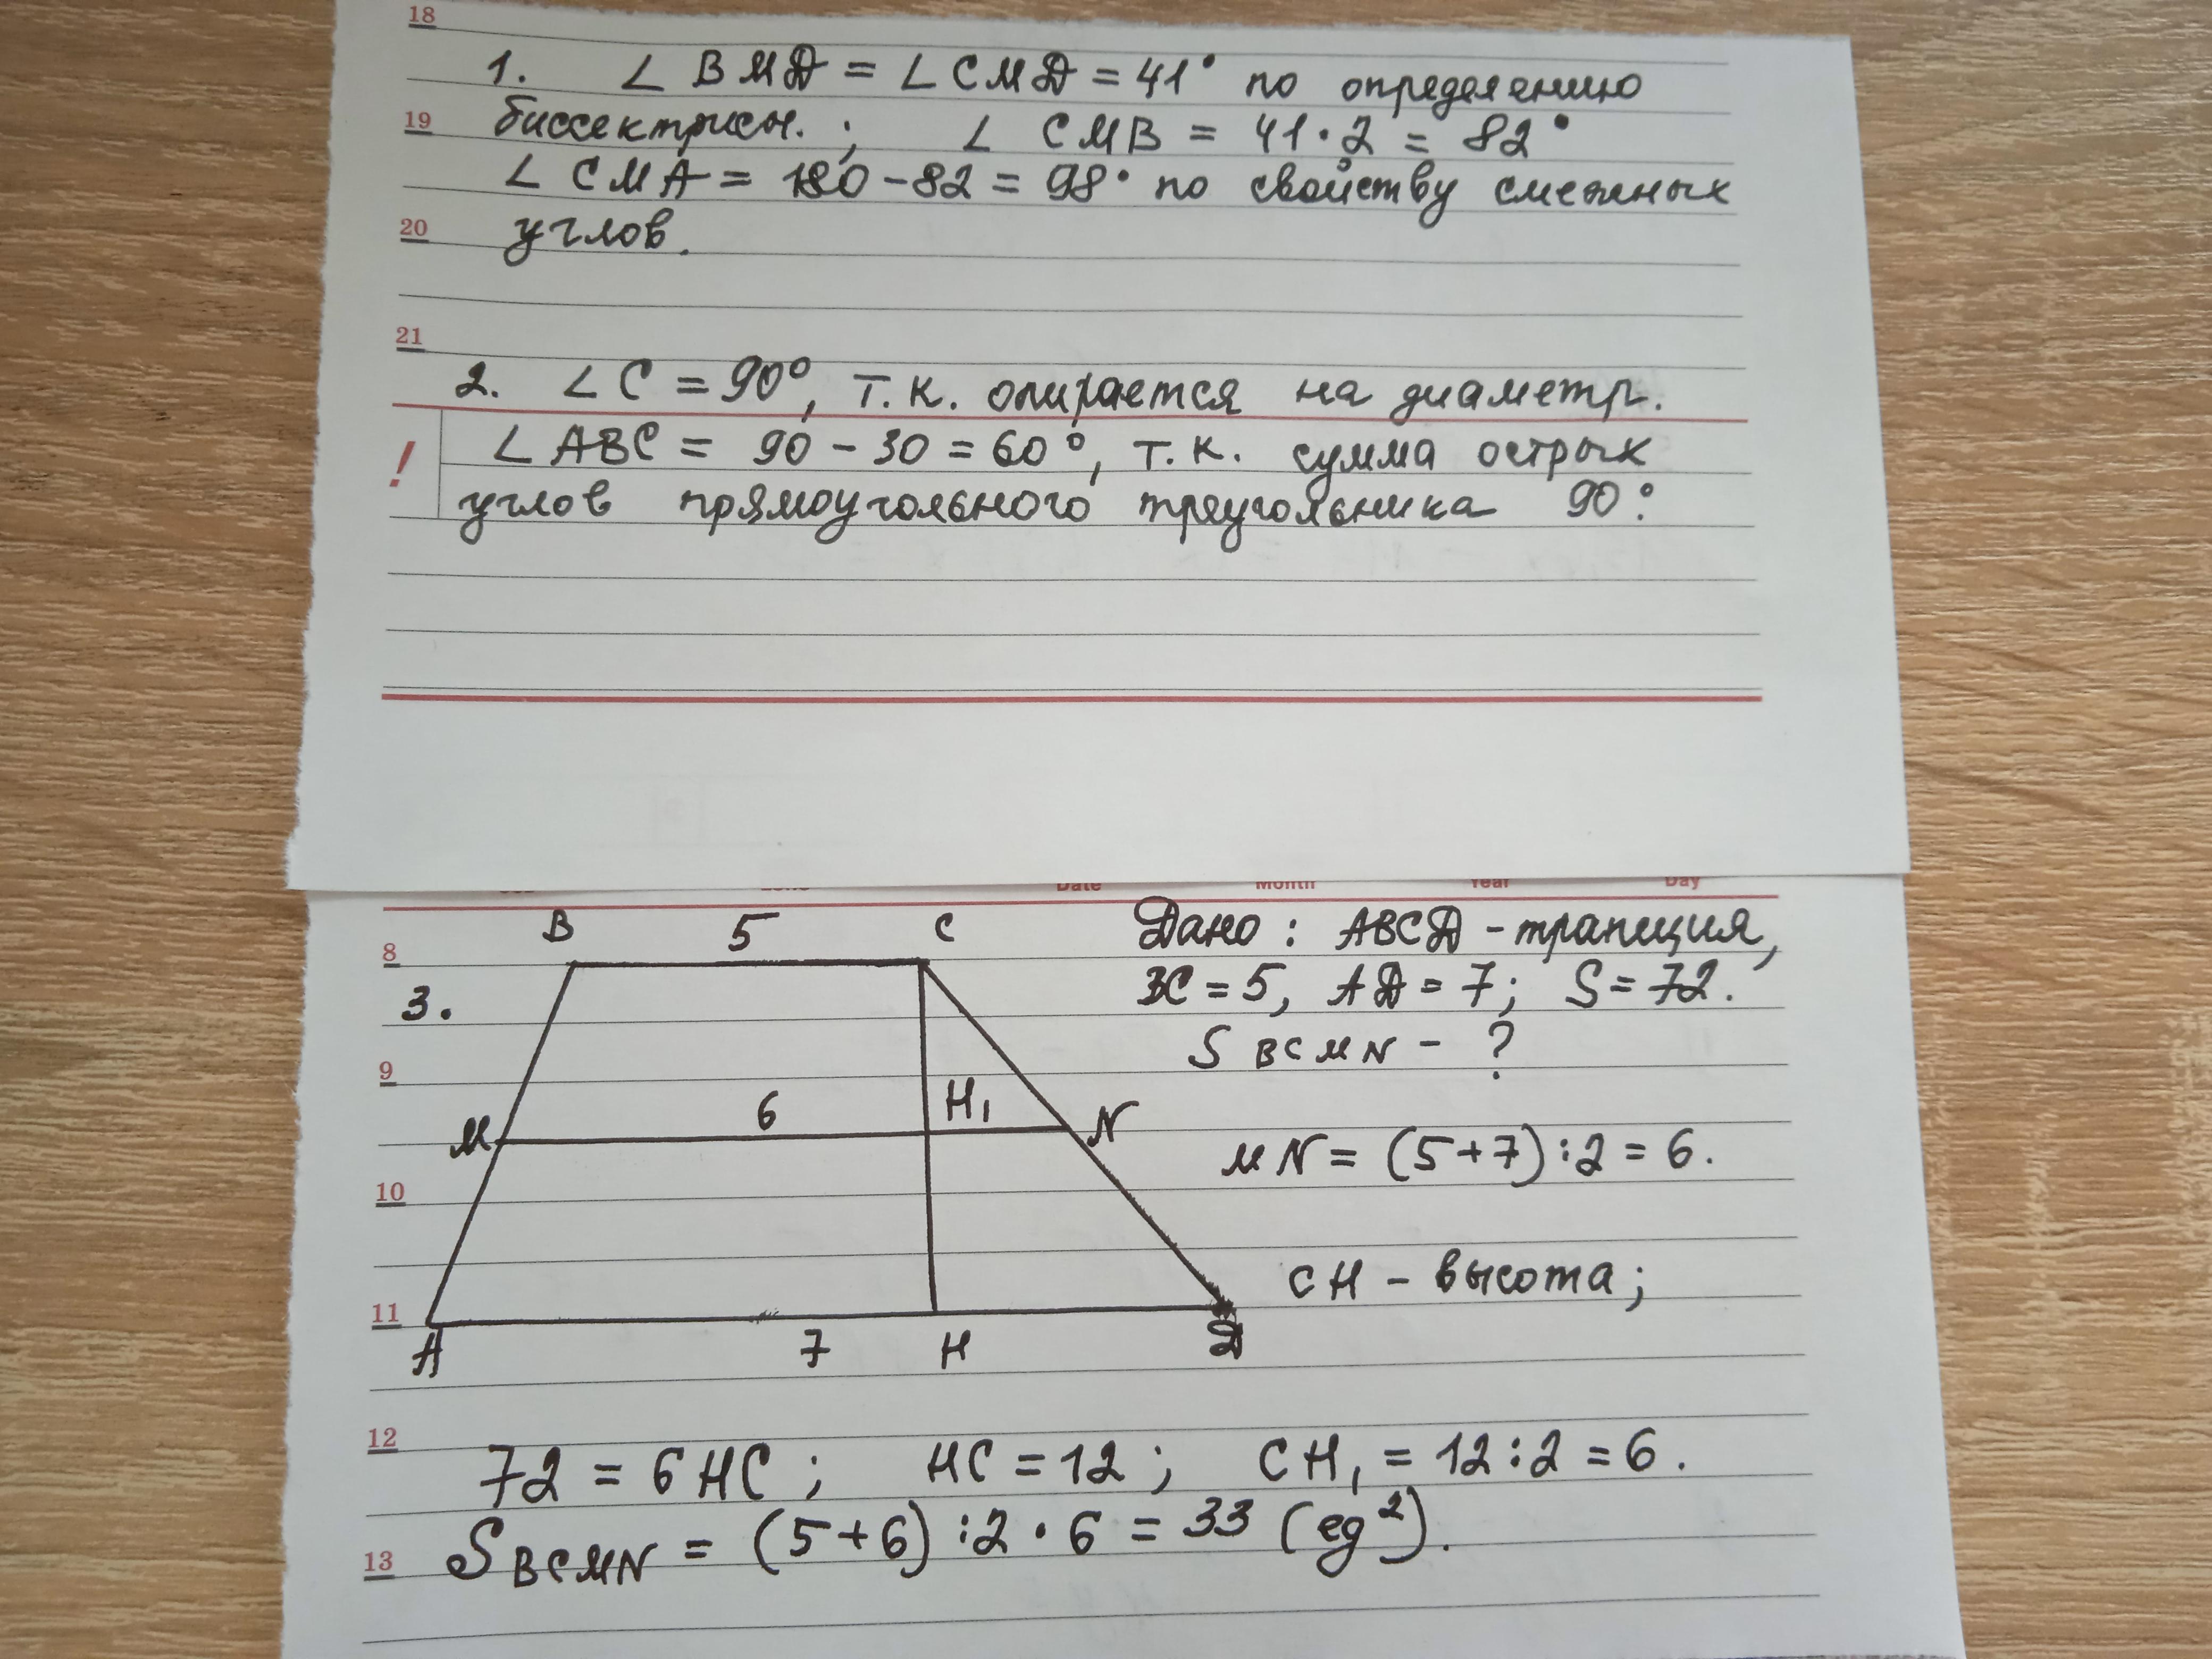 18
1. ∠ BMД = ∠ CMД = 41° по определению
19 биссектрисы. ; ∠ CMB = 41·2 = 82°
∠ CMA = 180 - 82 = 98° по свойству смежных
20 углов.
21
2. ∠ C = 90°, т.к. опирается на диаметр.
! ∠ ABC = 90 - 30 = 60°, т.к. сумма острых
углов прямоугольного треугольника 90°.
Date Month Year Day
B 5 C
8
3.
Дано: ABCД - трапеция,
BC = 5, AД = 7; S = 72.
S BCMN - ?
9
6 H₁
M N
MN = (5+7):2 = 6.
10
CH - высота;
11
A 7 H Д
12
72 = 6HC; HC = 12; CH₁ = 12:2 = 6.
13 S BCMN = (5+6):2·6 = 33 (ед²).